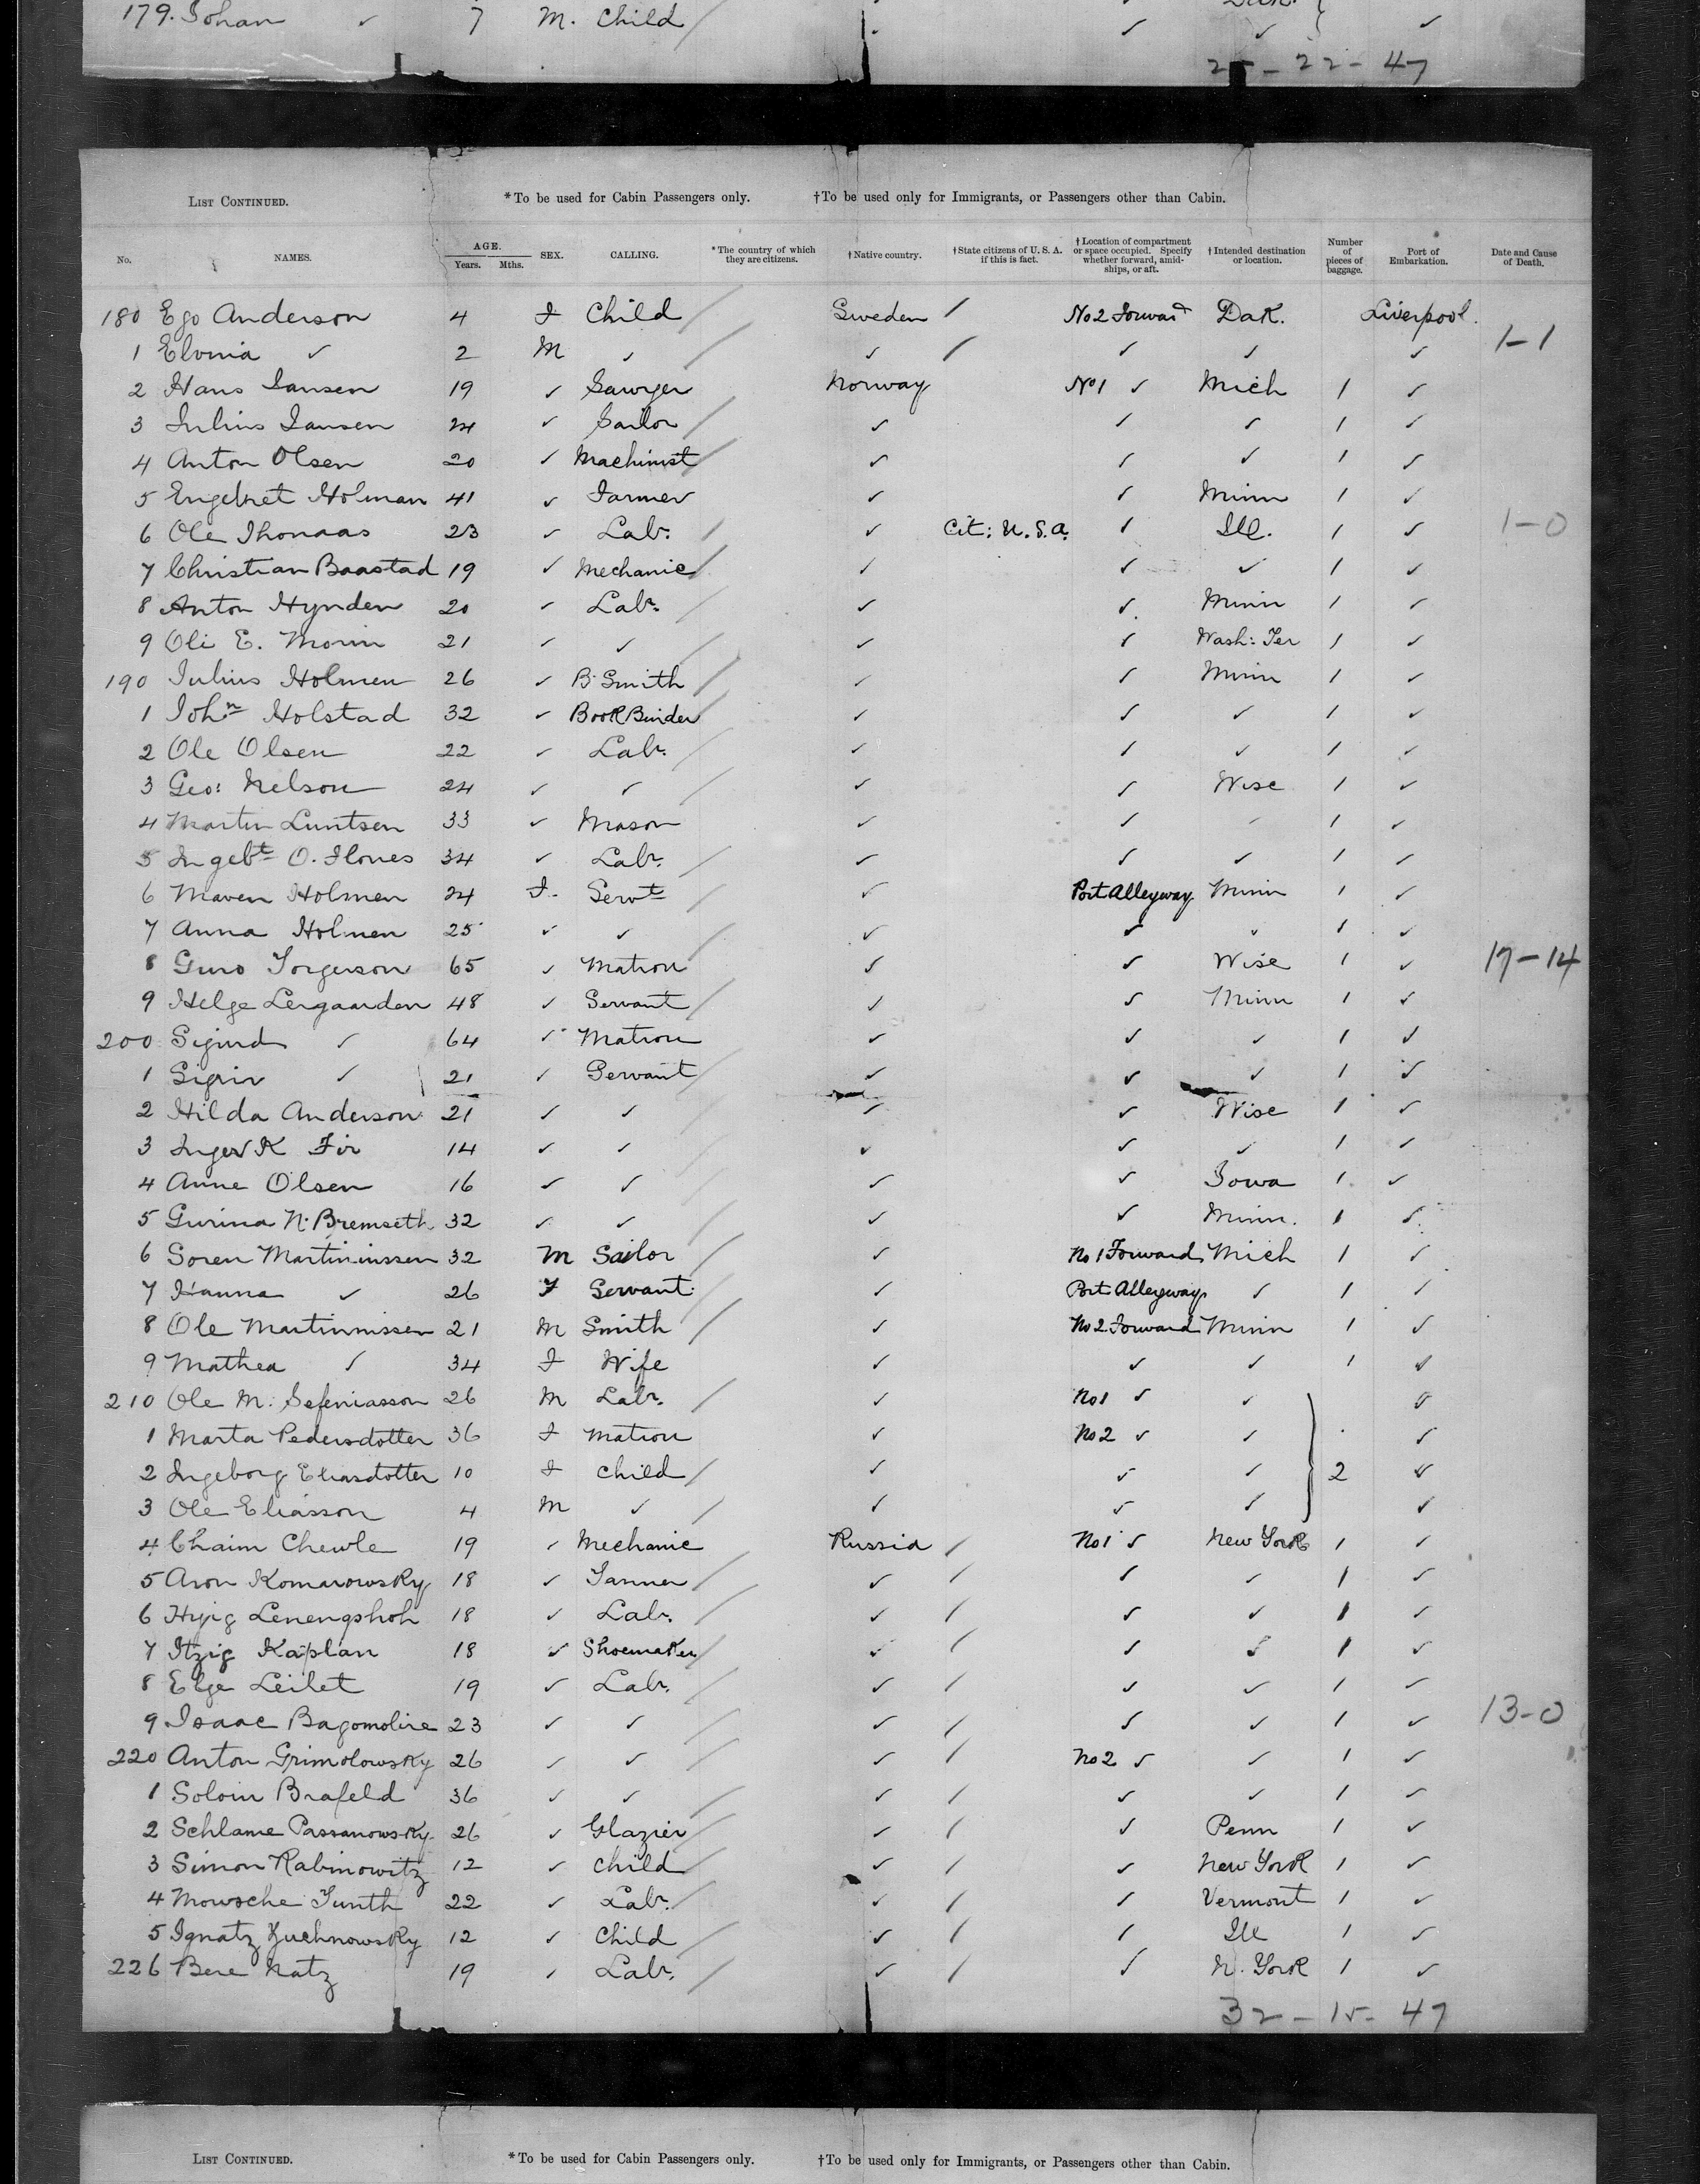 179. Johan ✓ 7 M. Child ✓ ✓ ✓
25 - 22 - 47
LIST CONTINUED. *To be used for Cabin Passengers only. †To be used only for Immigrants, or Passengers other than Cabin.
No. NAMES. AGE. Years. Mths. SEX. CALLING. *The country of which they are citizens. †Native country. †State citizens of U. S. A. if this is fact. †Location of compartment or space occupied. Specify whether forward, amidships, or aft. †Intended destination or location. Number of pieces of baggage. Port of Embarkation. Date and Cause of Death.
180 Ego Anderson 4 F Child Sweden No 2 Forward Dak. Liverpool.
1 Elvina ✓ 2 M ✓ ✓ ✓ ✓ ✓ 1-1
2 Hans Jansen 19 ✓ Sawyer Norway No 1 ✓ Mich 1 ✓
3 Julius Jansen 24 ✓ Sailor ✓ ✓ ✓ 1 ✓
4 Anton Olsen 20 ✓ Machinist ✓ ✓ ✓ 1 ✓
5 Engebret Holman 41 ✓ Farmer ✓ ✓ Minn 1 ✓
6 Ole Thonaas 23 ✓ Labr. ✓ Cit: U.S.A. ✓ Ill. 1 ✓ 1-0
7 Christian Baastad 19 ✓ Mechanic ✓ ✓ ✓ 1 ✓
8 Anton Hynden 20 ✓ Labr. ✓ ✓ Minn 1 ✓
9 Oli E. Morin 21 ✓ ✓ ✓ ✓ Wash: Ter 1 ✓
190 Julius Holmen 26 ✓ B. Smith ✓ ✓ Minn 1 ✓
1 John Holstad 32 ✓ Book Binder ✓ ✓ ✓ 1 ✓
2 Ole Olsen 22 ✓ Labr. ✓ ✓ ✓ 1 ✓
3 Geo: Nelson 24 ✓ ✓ ✓ ✓ Wisc 1 ✓
4 Martin Luntsen 33 ✓ Mason ✓ ✓ ✓ 1 ✓
5 Ingebt O. Flones 34 ✓ Labr. ✓ ✓ ✓ 1 ✓
6 Maren Holmen 24 F. Servt ✓ Port Alleyway Minn 1 ✓
7 Anna Holmen 25 ✓ ✓ ✓ ✓ ✓ 1 ✓
8 Guro Torgerson 65 ✓ Matron ✓ ✓ Wisc 1 ✓ 17-14
9 Helge Lergaarden 48 ✓ Servant ✓ ✓ Minn 1 ✓
200 Sigurd ✓ 64 ✓ Matron ✓ ✓ ✓ 1 ✓
1 Sigriv ✓ 21 ✓ Servant ✓ ✓ ✓ 1 ✓
2 Hilda Anderson 21 ✓ ✓ ✓ ✓ Wisc 1 ✓
3 Inger K Fir 14 ✓ ✓ ✓ ✓ ✓ 1 ✓
4 Anne Olsen 16 ✓ ✓ ✓ ✓ Iowa 1 ✓
5 Gurina N. Bremseth 32 ✓ ✓ ✓ ✓ Minn. 1 ✓
6 Soren Martininssen 32 M Sailor ✓ No 1 Forward Mich 1 ✓
7 Hanna ✓ 26 F Servant ✓ Port Alleyway ✓ 1 ✓
8 Ole Martinnissen 21 M Smith ✓ No 2 Forward Minn 1 ✓
9 Mathea ✓ 34 F Wife ✓ ✓ ✓ 1 ✓
210 Ole M. Sefeniasson 26 M Labr. ✓ No 1 ✓ ✓ ✓
1 Marta Pedersdotter 36 F Matron ✓ No 2 ✓ ✓ ✓
2 Ingeborg Eliasdotter 10 F Child ✓ ✓ ✓ 2 ✓
3 Ole Eliasson 4 M ✓ ✓ ✓ ✓ ✓
4 Chaim Chewle 19 ✓ Mechanic Russia No 1 ✓ New York 1 ✓
5 Aron Komarowsky 18 ✓ Tanner ✓ ✓ ✓ 1 ✓
6 Hyig Lenengshoh 18 ✓ Labr. ✓ ✓ ✓ 1 ✓
7 Itzig Kaplan 18 ✓ Shoemaker ✓ ✓ ✓ 1 ✓
8 Elge Leilet 19 ✓ Labr. ✓ ✓ ✓ 1 ✓
9 Isaac Bagomolire 23 ✓ ✓ ✓ ✓ ✓ 1 ✓ 13-0
220 Anton Grimolowsky 26 ✓ ✓ ✓ No 2 ✓ ✓ 1 ✓
1 Soloin Brafeld 36 ✓ ✓ ✓ ✓ ✓ 1 ✓
2 Schlame Passanowsky 26 ✓ Glazier ✓ ✓ Penn 1 ✓
3 Simon Rabinowitz 12 ✓ Child ✓ ✓ New York 1 ✓
4 Mowsche Junth 22 ✓ Labr. ✓ ✓ Vermont 1 ✓
5 Ignatz Zuchnowsky 12 ✓ Child ✓ ✓ Ill 1 ✓
226 Bere Natz 19 ✓ Labr. ✓ ✓ N. York 1 ✓
32 - 15 - 47
LIST CONTINUED. *To be used for Cabin Passengers only. †To be used only for Immigrants, or Passengers other than Cabin.